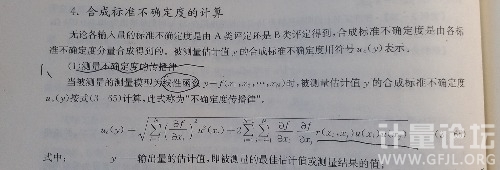 4. 合成标准不确定度的计算
无论各输入量的标准不确定度是由 A 类评定还是 B 类评定得到，合成标准不确定度是由各标
准不确定度分量合成得到的。被测量估计值 y 的合成标准不确定度用符号 u_c(y) 表示。
(1)测量不确定度的传播律
当被测量的测量模型为线性函数 y=f(x₁,x₂,…,x_N)时，被测量估计值 y 的合成标准不确定度
u_c(y)按式(3-65)计算，此式称为"不确定度传播律"。
u_c(y)=√(∑(∂f/∂x_i)²u²(x_i)+2∑∑ ∂f/∂x_i ∂f/∂x_j r(x_i,x_j)u(x_i)u(x_j))
式中： y——输出量的估计值，即被测量的最佳估计值或测量结果的值；
计量论坛
www.GFJL.ORG